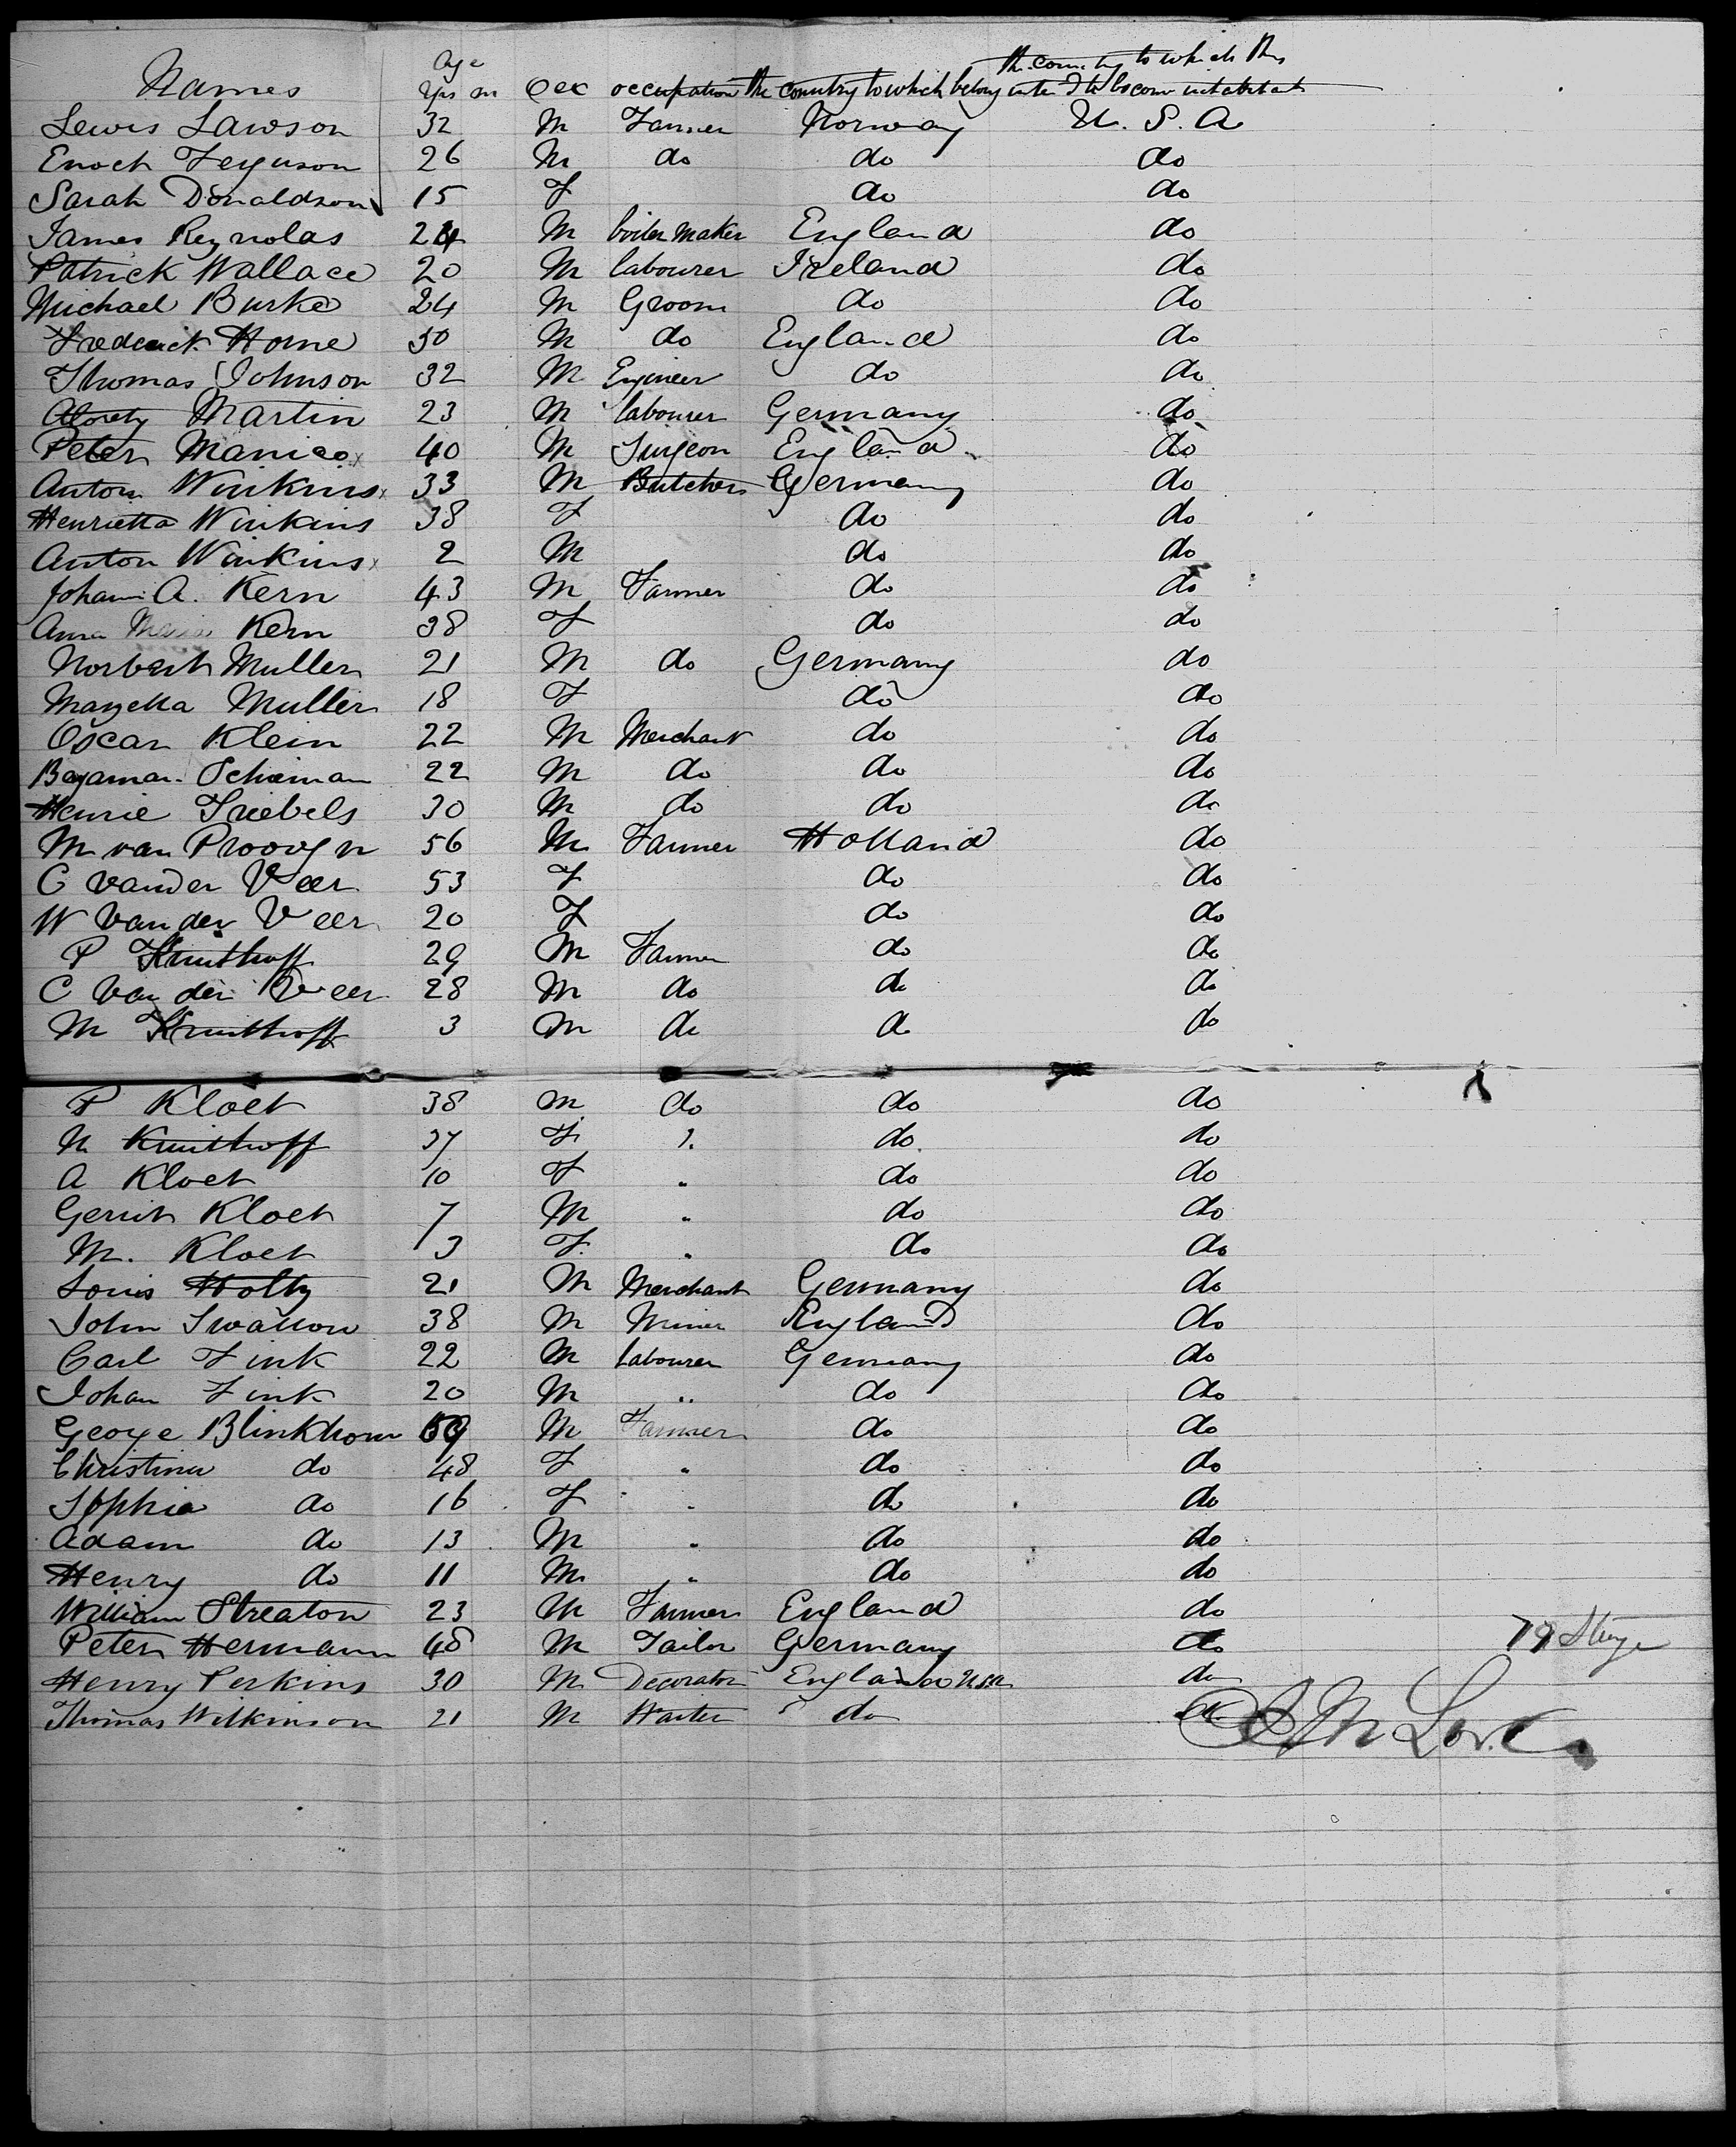 Age the country to which they
Names Yrs m Sex occupation the country to which belong intend to become inhabitants
Lewis Lawson 32 M Farmer Norway U. S. A
Enoch Ferguson 26 M do do do
Sarah Donaldson 15 F do do
James Reynolds 24 M boiler maker England do
Patrick Wallace 20 M labourer Ireland do
Michael Burke 24 M Groom do do
Frederick Horne 50 M do England do
Thomas Johnson 32 M Engineer do do
Martin 23 M labourer Germany do
Peter Manico 40 M Surgeon England do
Anton Winkins 33 M Butcher Germany do
Henrietta Winkins 38 F do do
Anton Winkins 2 M do do
Johann A. Kern 43 M Farmer do do
Anna Maria Kern 38 F do do
Norbert Muller 21 M do Germany do
Muller 18 F do do
Oscar Klein 22 M Merchant do do
22 M do do do
Henrie Friebels 30 M do do do
M van 56 M Farmer Holland do
C van der Veer 53 F do do
W van der Veer 20 F do do
P Kruithoff 29 M Farmer do do
C Van der Veer 28 M do do do
M Kruithoff 3 M do do do
P Kloet 38 M do do do
N Kruithoff 37 F do do
A Kloet 10 F " do do
Gerrit Kloet 7 M " do do
M. Kloet 3 F. " do do
Louis Holtz 21 M Merchant Germany do
John Swallow 38 M Miner England do
Carl Fink 22 M labourer Germany do
Johan Fink 20 M " do do
George Blinkhorn 59 M Farmer do do
Christina do 48 F " do do
Sophia do 16 F " do do
Adam do 13 M " do do
Henry do 11 M " do do
William Streaton 23 M Farmer England do
Peter Hermann 48 M Tailor Germany do
Henry Perkins 30 M Decorator England do
Thomas Wilkinson 21 M Waiter do do